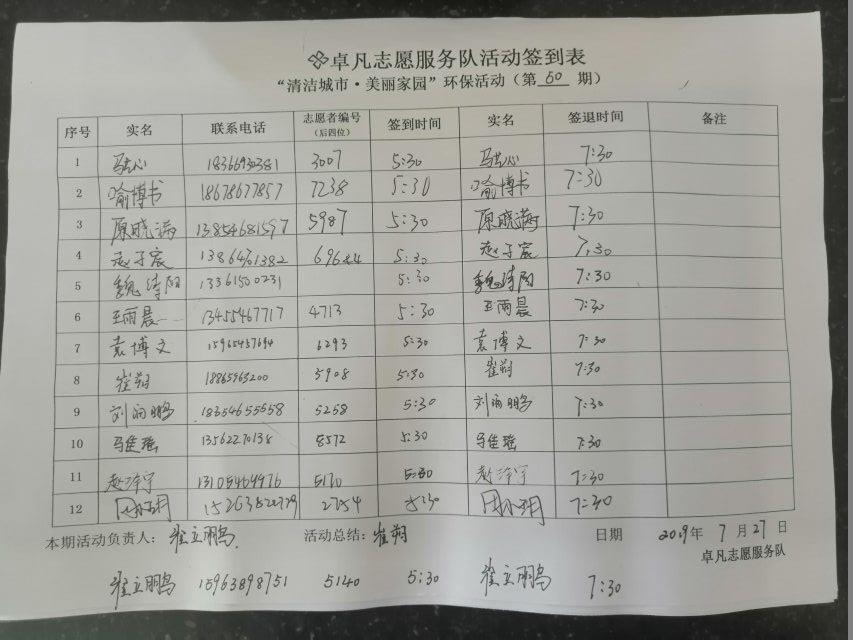 卓凡志愿服务队活动签到表
“清洁城市·美丽家园”环保活动（第 50 期）
序号 实名 联系电话 志愿者编号（后四位） 签到时间 实名 签退时间 备注
1 18366930381 3007 5:30 7:30
2 喻博书 18678677857 7238 5:30 喻博书 7:30
3 原晓满 13854681597 5987 5:30 原晓满 7:30
4 赵子宸 13864761382 5:30 赵子宸 7:30
5 魏涛阳 13361500231 5:30 魏涛阳 7:30
6 王雨晨 13455467717 4713 5:30 王雨晨 7:30
7 袁博文 15965457694 6293 5:30 袁博文 7:30
8 崔朔 18865963200 5908 5:30 崔朔 7:30
9 刘雨鹏 18354655558 5258 5:30 刘雨鹏 7:30
10 马佳瑶 13562270138 8572 5:30 马佳瑶 7:30
11 赵泽宇 13105464976 5170 5:30 赵泽宇 7:30
12 2754 5:30 7:30
本期活动负责人： 崔立鹏 活动总结： 崔朔 日期 2019年 7 月 27 日
卓凡志愿服务队
崔立鹏 15963898751 5140 5:30 崔立鹏 7:30